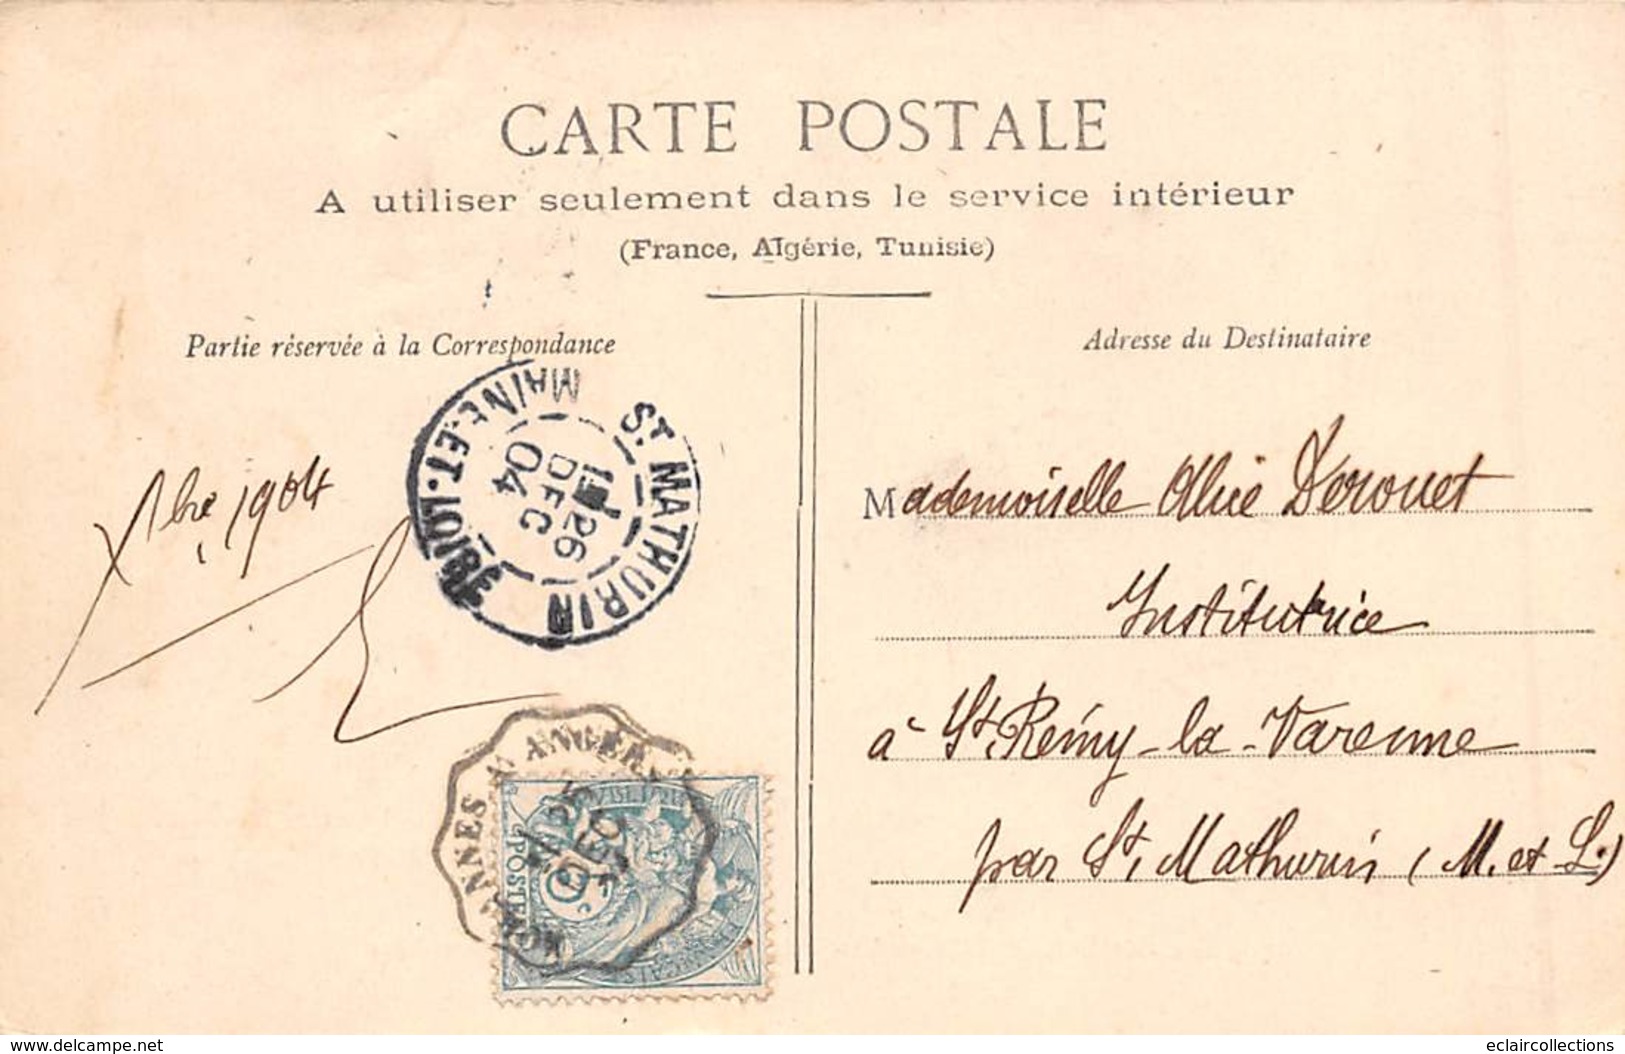 CARTE POSTALE
A utiliser seulement dans le service intérieur
(France, Algérie, Tunisie)
Partie réservée à la Correspondance
Xbre 1904
ST MATHURIN
MAINE-ET-LOIRE
26
DEC
04
ANGERS
POSTES
Adresse du Destinataire
Mademoiselle Alice Derouet
Institutrice
à St. Rémy-la-Varenne
par St. Mathurin (M. et L.)
www.delcampe.net
eclaircollections